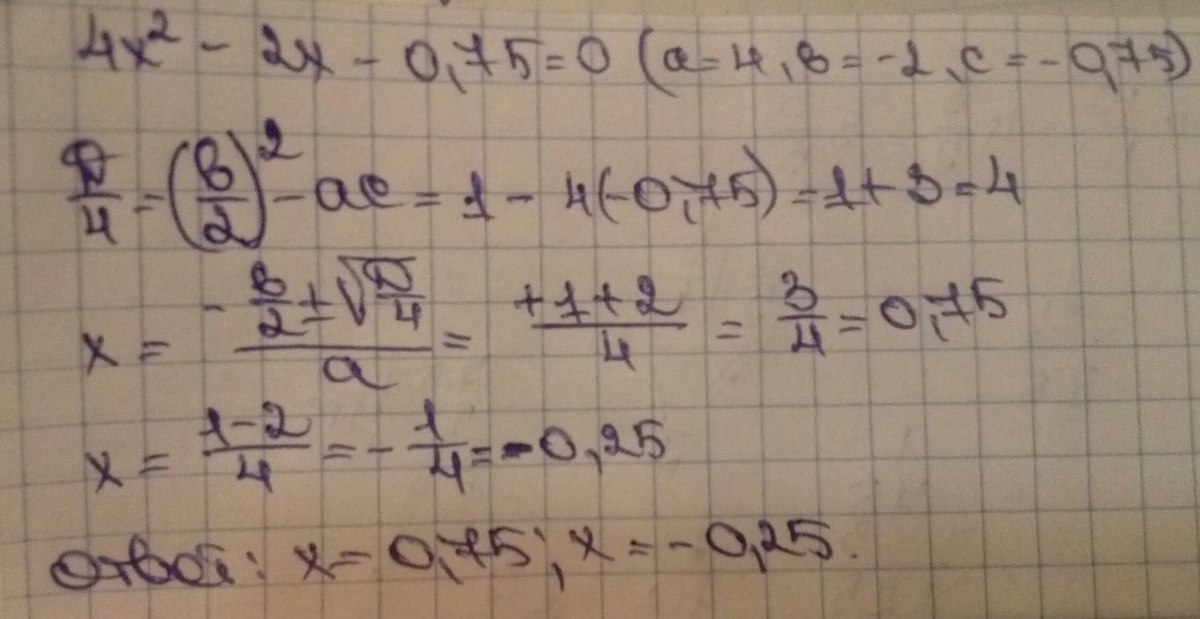 4x² - 2x - 0,75 = 0 (a = 4, в = -2, c = -0,75)
D/4 = (в/2)² - ac = 1 - 4(-0,75) = 1 + 3 = 4
x = (-в/2 ± √(D/4))/a = (+1+2)/4 = 3/4 = 0,75
x = (1-2)/4 = -1/4 = -0,25
Ответ: x = 0,75; x = -0,25.